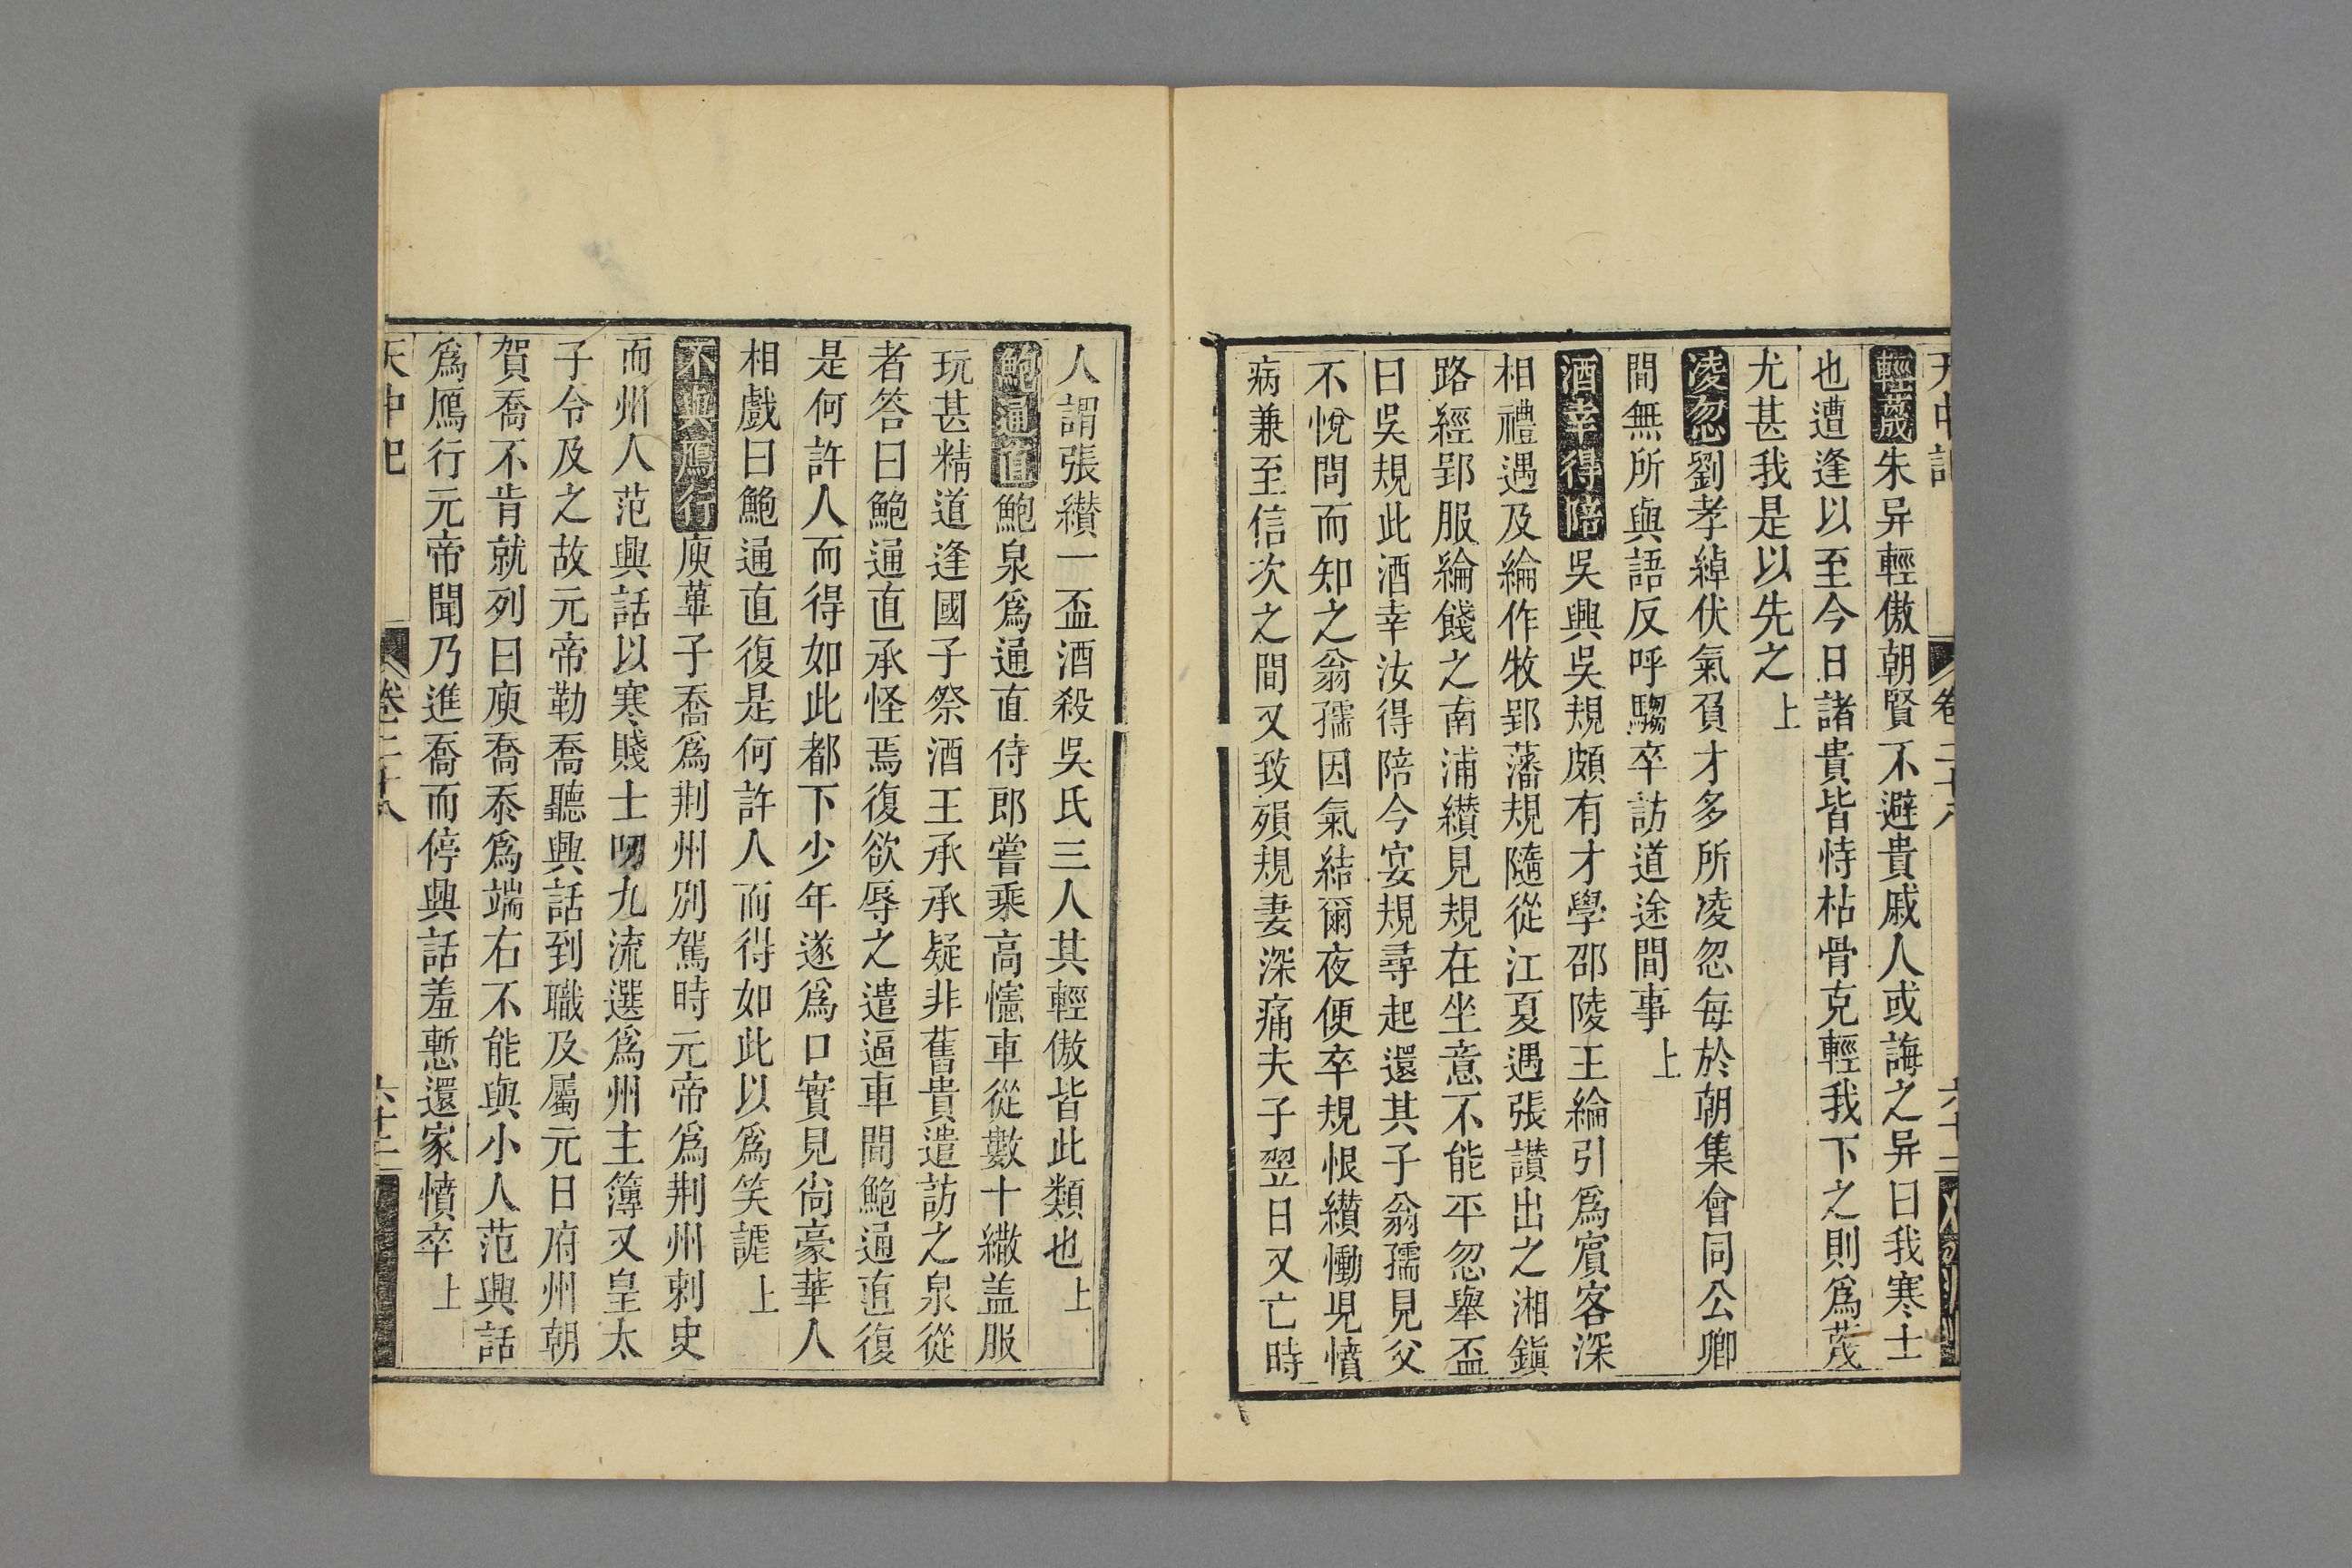 天中記 卷二十八 六十二
輕蔑朱异輕傲朝賢不避貴戚人或誨之异曰我寒士
也遭逢以至今日諸貴皆恃枯骨克輕我下之則爲蔑
尤甚我是以先之上
凌忽劉孝綽伏氣負才多所凌忽每於朝集會同公卿
間無所與語反呼騶卒訪道途間事上
酒幸得陪吳興吳規頗有才學邵陵王綸引爲賓客深
相禮遇及綸作牧郢藩規隨從江夏遇張讃出之湘鎭
路經郢服綸餞之南浦纉見規在坐意不能平忽舉盃
曰吳規此酒幸汝得陪今宴規尋起還其子翁孺見父
不悅問而知之翁孺因氣結爾夜便卒規恨纉慟児憤
病兼至信次之間又致殞規妻深痛夫子翌日又亡時
人謂張纉一盃酒殺吳氏三人其輕傲皆此類也上
鮑通直鮑泉爲通直侍郎嘗乗高幰車從數十繖盖服
玩甚精道逢國子祭酒王承承疑非舊貴遣訪之泉從
者答曰鮑通直承怪焉復欲辱之遣逼車間鮑通直復
是何許人而得如此都下少年遂爲口實見尙豪華人
相戲曰鮑通直復是何許人而得如此以爲笑謔上
不與鴈行庾蓽子喬爲荆州別駕時元帝爲荆州刺史
而州人范興話以寒賤士叨九流選爲州主簿又皇太
子令及之故元帝勒喬聽興話到職及屬元日府州朝
賀喬不肯就列曰庾喬忝爲端右不能與小人范興話
爲鴈行元帝聞乃進喬而停興話羞慙還家憤卒上
天中記 卷二十八 六十二